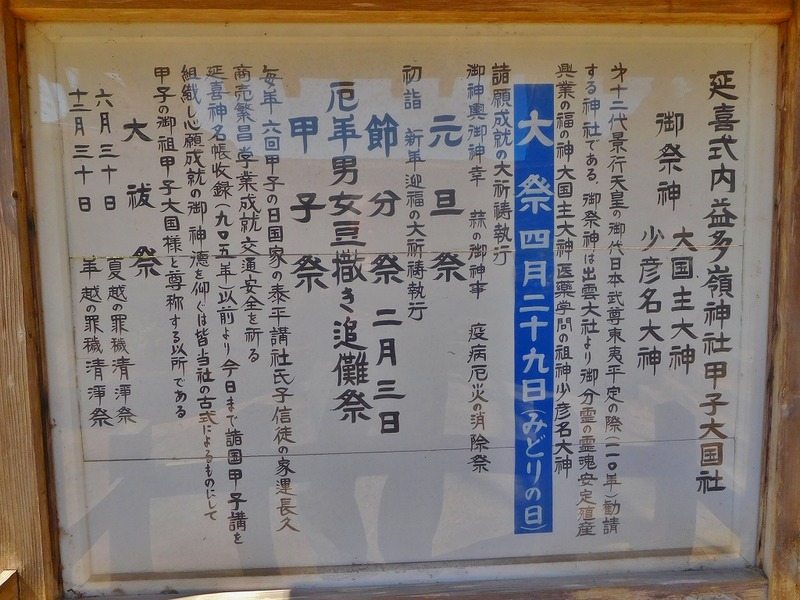 延喜式内益多嶺神社甲子大国社
御祭神 大国主大神
少彦名大神
オ十二代景行天皇の御代日本武尊東夷平定の際(一一〇年)勧請
する神社である。御祭神は出雲大社より御分霊の霊魂安定殖産
興業の福の神大国主大神医薬学問の祖神少彦名大神
大祭 四月二十九日(みどりの日)
諸願成就の大祈祷執行
御神輿御神幸 蒜の御神事 疫病厄火の消除祭
元旦祭
初詣 新年迎福の大祈祷執行
節分祭 二月三日
厄年男女豆撒き追儺祭
甲子祭
毎年六回甲子の日国家の泰平講社氏子信徒の家運長久
商売繁昌学業成就交通安全を祈る
延喜神名帳收録(九〇五年)以前より今日まで諸国甲子講を
組織し心願成就の御神德を仰ぐは皆当社の古式によるものにして
甲子の御祖甲子大国様と尊称する以所である
大祓祭
六月三十日 夏越の罪穢清浄祭
十二月三十日 年越の罪穢清浄祭